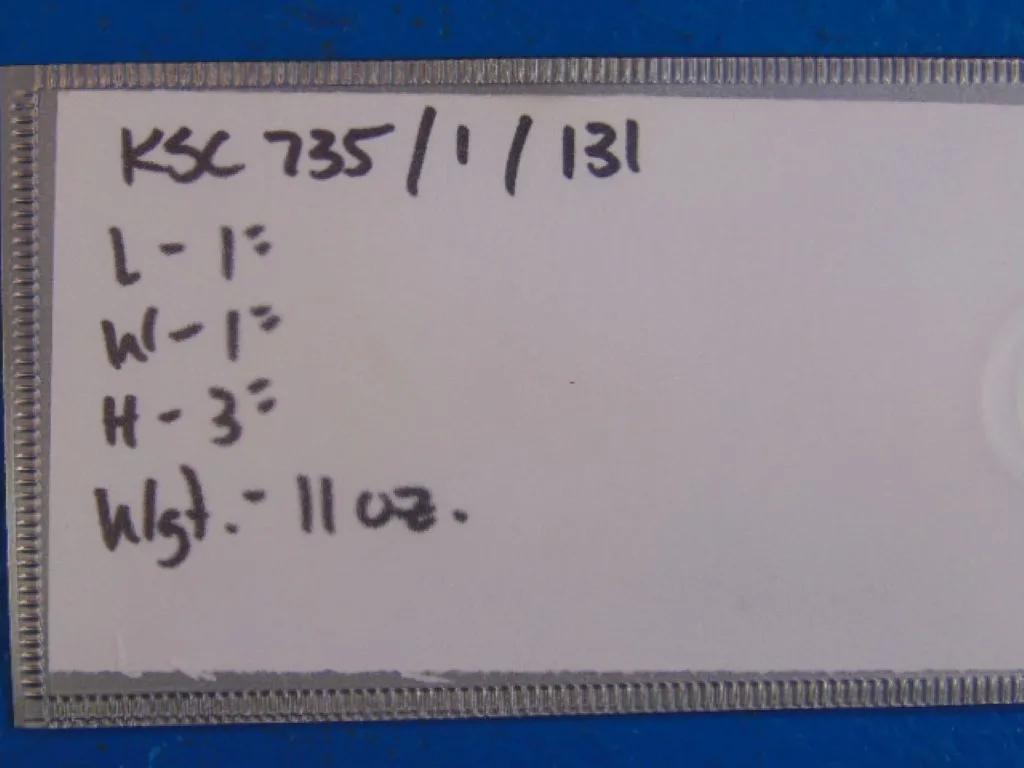 KSC 735/1/131
L - 1"
W - 1"
H - 3"
Wgt. - 11 oz.